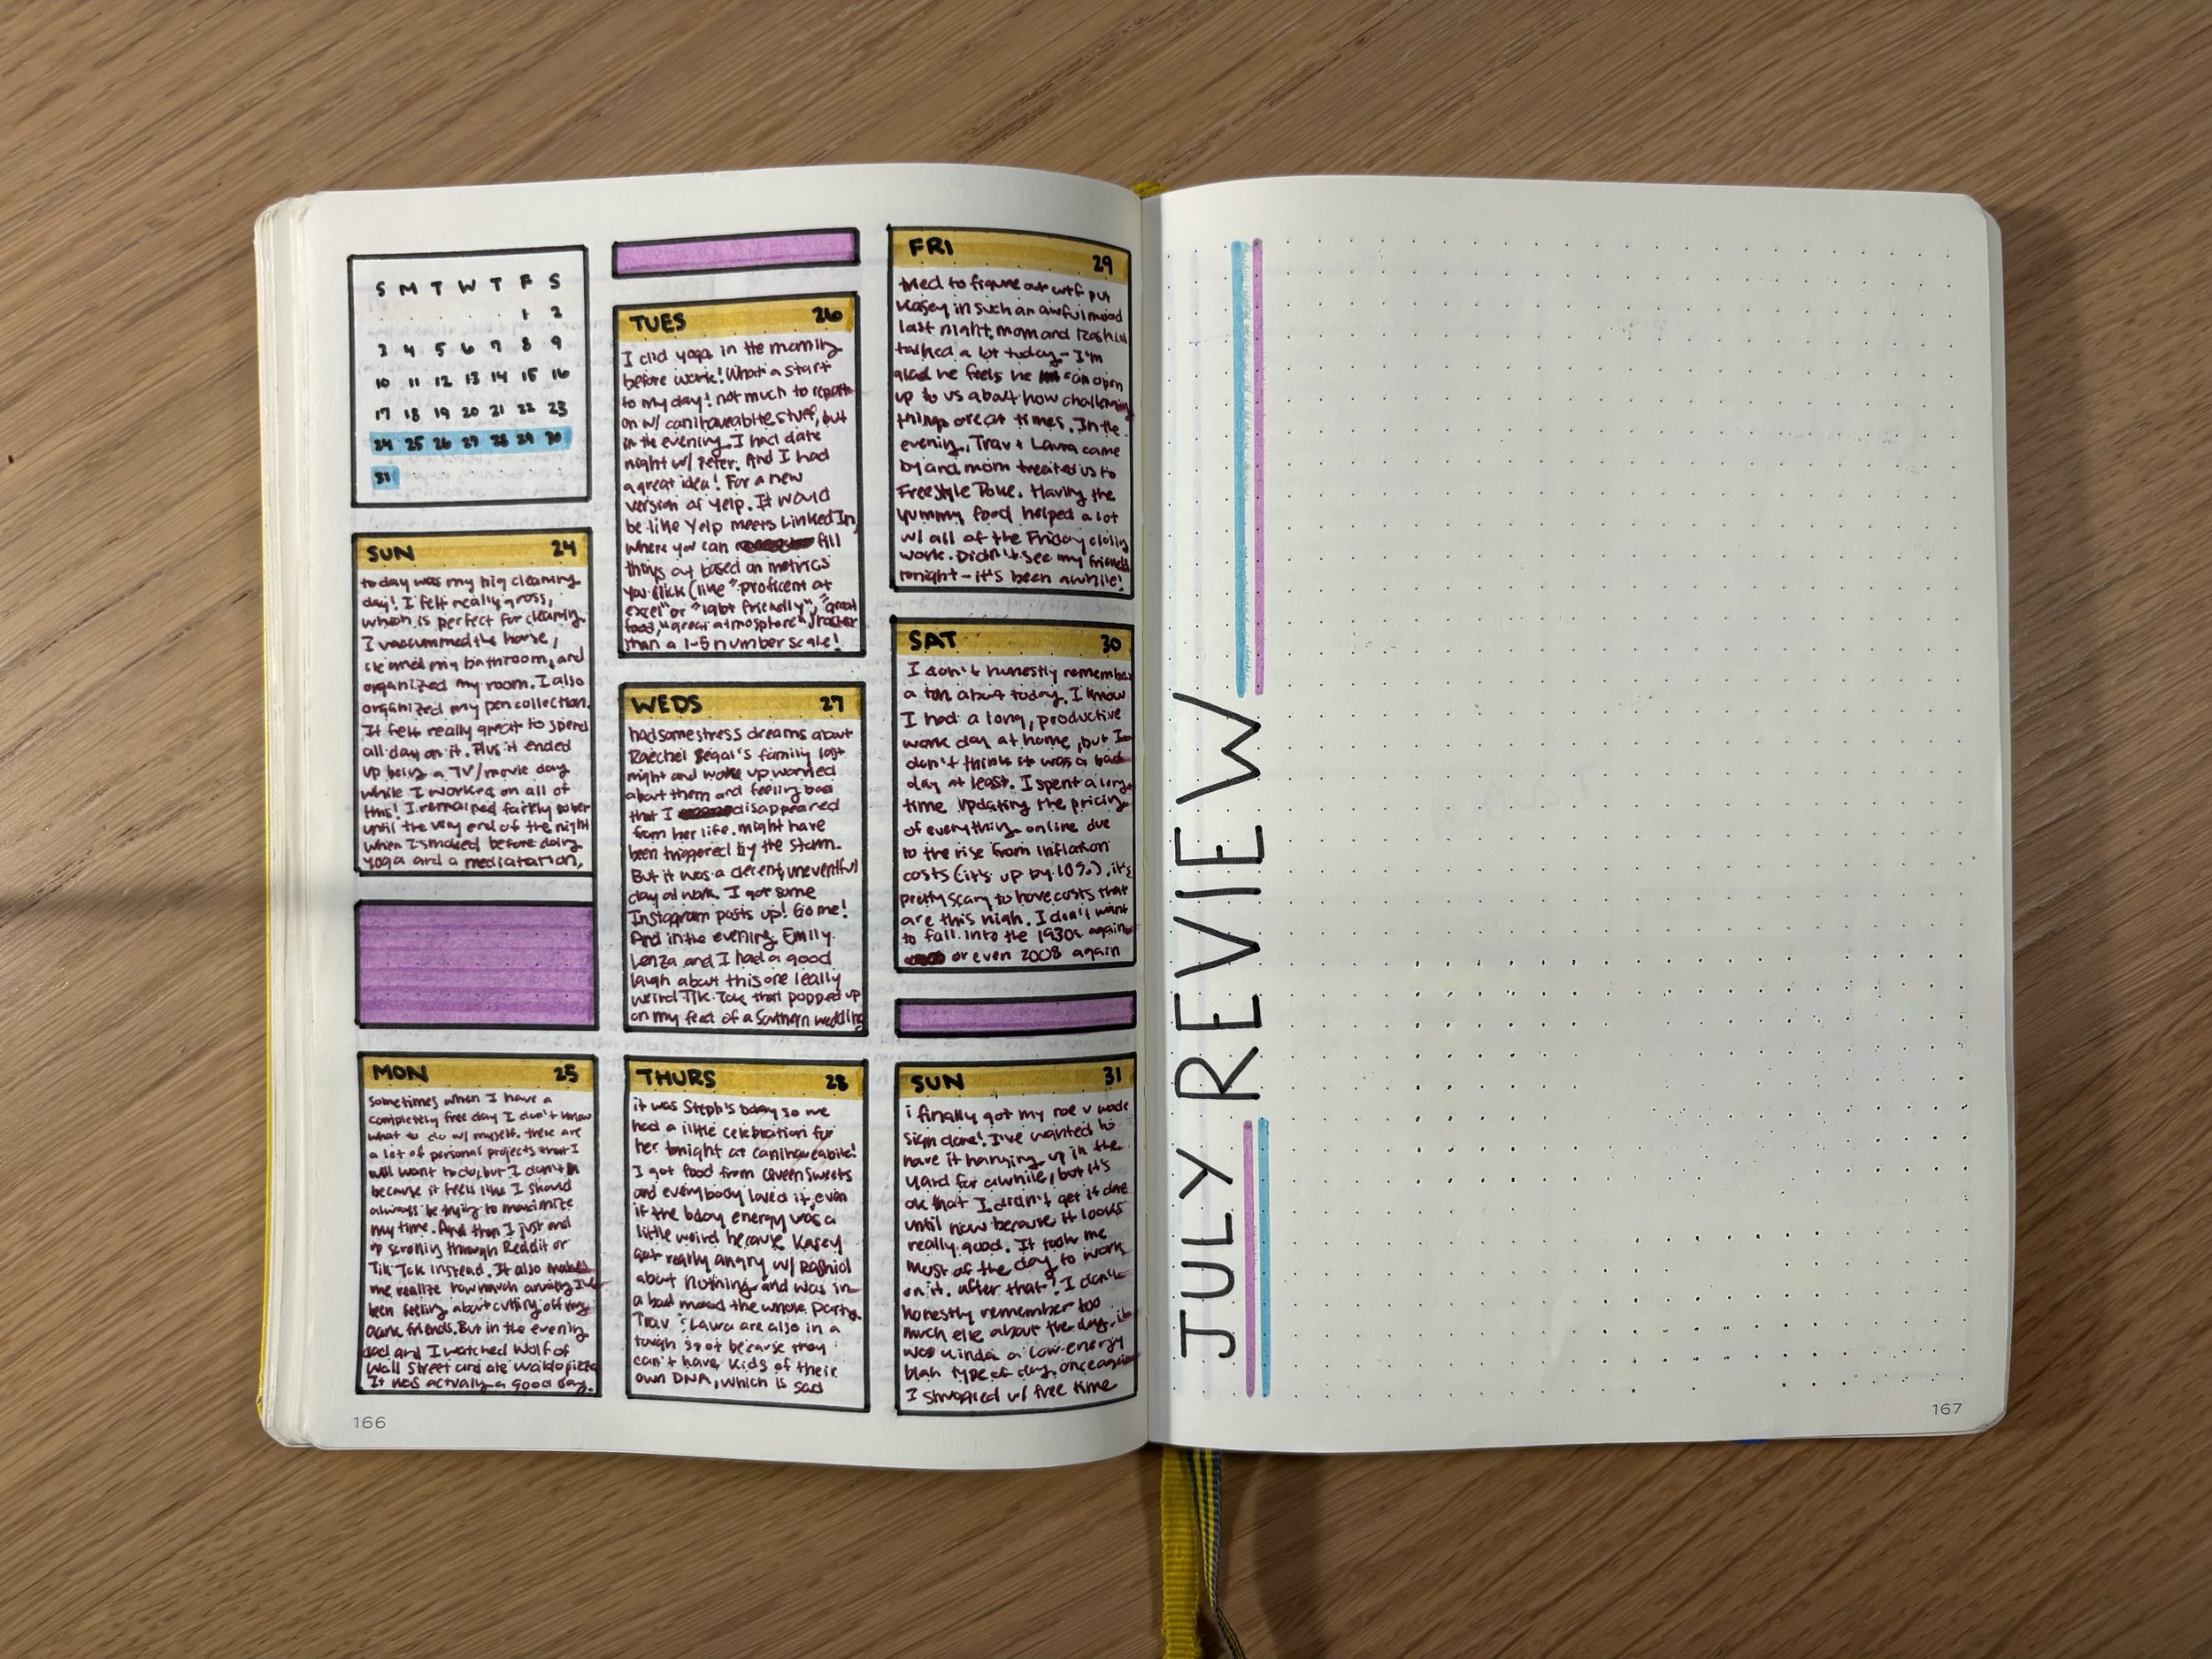 S M T W T F S
1 2
3 4 5 6 7 8 9
10 11 12 13 14 15 16
17 18 19 20 21 22 23
24 25 26 27 28 29 30
31
SUN 24
today was my big cleaning
day! I felt really gross,
which is perfect for cleaning.
I vacuummed the house,
cleaned my bathroom, and
organized my room. I also
organized my pen collection.
It felt really great to spend
all day on it. Plus it ended
up being a TV/movie day
while I worked on all of
this! I remained fairly sober
until the very end of the night
when I smoked before doing
yoga and a mediatation.
MON 25
sometimes when I have a
completely free day I don't know
what to do w/ myself. there are
a lot of personal projects that I
will want to do, but I don't
because it feels like I should
always be trying to maximize
my time. And then I just end
up scrolling through Reddit or
Tik Tok instead. It also makes
me realize how much anxiety I've
been feeling about cutting off my
friends. But in the evening
dad and I watched Wolf of
Wall Street and ate waldo pizza
It was actually a good day.
TUES 26
I did yoga in the morning
before work! What a start
to my day! not much to report
on w/ canihaveabite stuff, but
in the evening I had date
night w/ Peter. And I had
a great idea! For a new
version of Yelp. It would
be like Yelp meets LinkedIn,
where you can fill
things out based on metrics
you click (like "proficent at
excel" or "lgbt friendly", "great
food," "great atmosphere") rather
than a 1-5 number scale!
WEDS 27
had some stress dreams about
Raechel Segal's family last
night and woke up worried
about them and feeling bad
that I disappeared
from her life. might have
been triggered by the storm.
But it was a decent, uneventful
day at work. I got some
Instagram posts up! Go me!
And in the evening Emily
Lenza and I had a good
laugh about this one really
weird Tik Tok that popped up
on my feed of a Southern wedding
THURS 28
it was Steph's bday so we
had a little celebration for
her tonight at canihaveabite!
I got food from Queen Sweets
and everybody loved it, even
if the bday energy was a
little weird because Kasey
got really angry w/ Rashid
about nothing and was in
a bad mood the whole party.
Trav & Laura are also in a
tough spot because they
can't have kids of their
own DNA, which is sad
FRI 29
tried to figure out wtf put
Kasey in such an awful mood
last night. mom and Rashid
talked a lot today - I'm
glad he feels he can open
up to us about how challenging
things are at times. In the
evening, Trav + Laura came
by and mom treated us to
FreeStyle Poke. Having the
yummy food helped a lot
w/ all of the Friday closing
work. Didn't see my friends
tonight - it's been awhile!
SAT 30
I don't honestly remember
a ton about today. I know
I had a long, productive
work day at home, but I
don't think it was a bad
day at least. I spent a long
time updating the pricing
of everything online due
to the rise from inflation
costs (it's up by 10%), it's
pretty scary to have costs that
are this high. I don't want
to fall into the 1930s again
or even 2008 again
SUN 31
i finally got my roe v wade
sign done! I've wanted to
have it hanging up in the
yard for awhile, but it's
ok that I didn't get it done
until now because it looks
really good. It took me
most of the day to work
on it. after that? I don't
honestly remember too
much else about the day. it
was kinda a low-energy
blah type of day. once again
I struggled w/ free time
166
JULY REVIEW
167